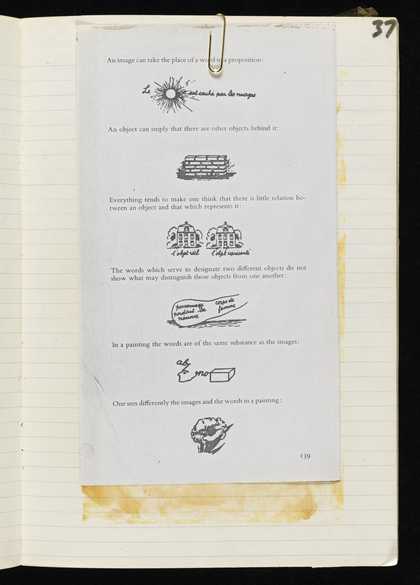 37
An image can take the place of a word in a proposition:
Le
est caché par les nuages
An object can imply that there are other objects behind it:
Everything tends to make one think that there is little relation be-
tween an object and that which represents it:
l'objet réel l'objet représenté
The words which serve to designate two different objects do not
show what may distinguish these objects from one another:
personnage
perdant la
mémoire
corps de
femme
In a painting the words are of the same substance as the images:
One sees differently the images and the words in a painting:
139